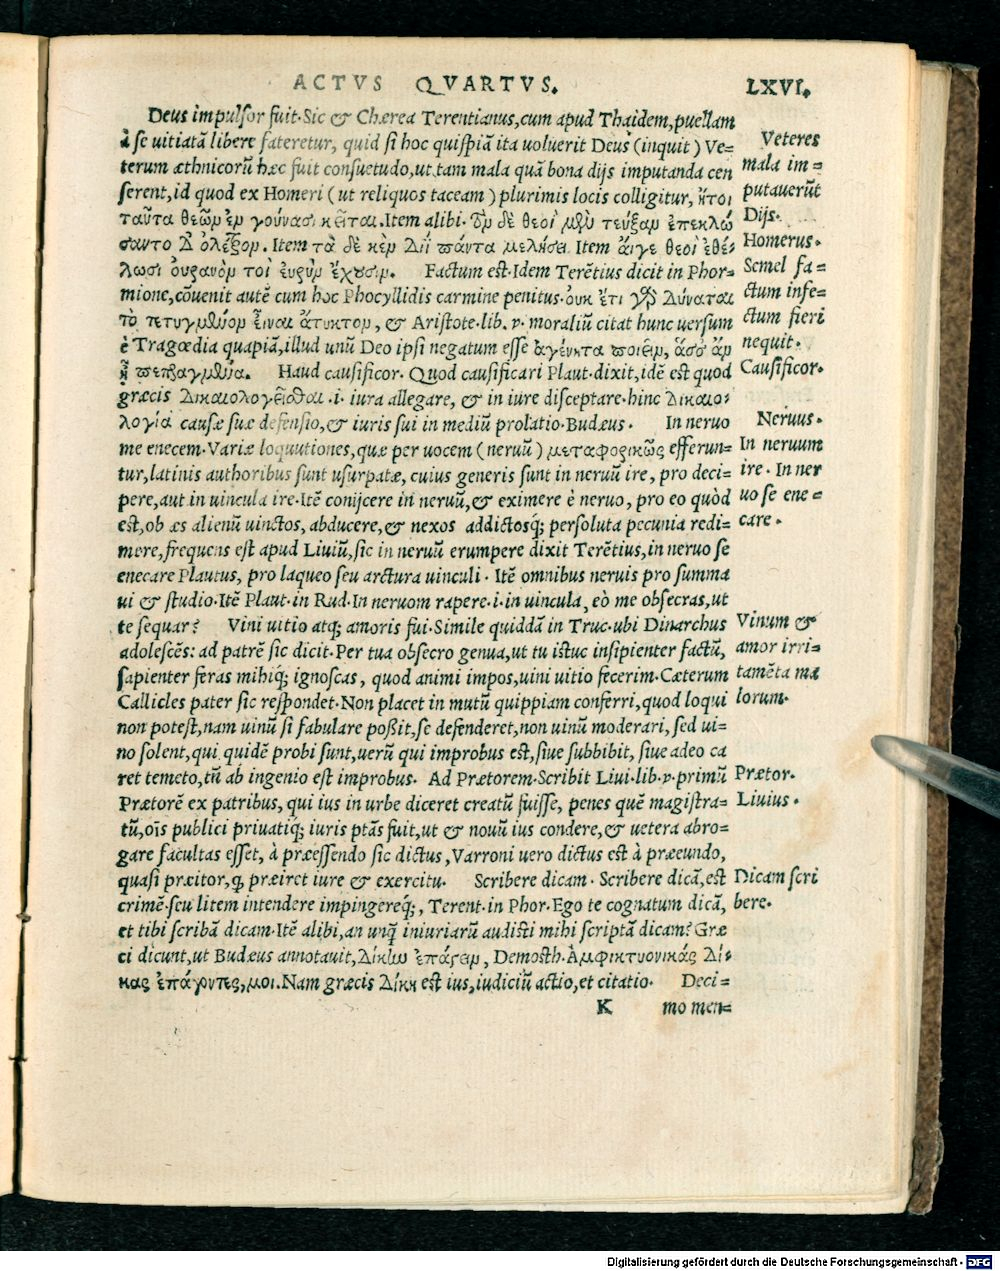 ACTVS QVARTVS. LXVI.
Deus impulsor fuit. Sic & Chærea Terentianus, cum apud Thaidem, puellam
à se uitiatā libere fateretur, quid si hoc quispiā ita uoluerit Deus (inquit) Ve=
terum æthnicorū hæc fuit consuetudo, ut tam mala quā bona dijs imputanda cen
serent, id quod ex Homeri (ut reliquos taceam) plurimis locis colligitur, ἤτοι
ταῦτα θεῶν ἐν γούνασι κεῖται. Item alibi. τὸν δὲ θεοὶ μὲν τεῦξαν ἐπεκλώ
σαντο δ' ὄλεθρον. Item τὰ δὲ κὲν Διῒ πάντα μελήσει. Item ἄιγε θεοὶ ἐθέ=
λωσι οὐρανὸν τοὶ ἐυρὺν ἔχουσιν. Factum est. Idem Terētius dicit in Phor=
mione, cōuenit autē cum hoc Phocyllidis carmine penitus. οὐκ ἔτι γὰρ δύναται
τὸ τετυγμένον εἶναι ἄτυκτον, & Aristote. lib. v. moraliū citat hunc uersum
è Tragœdia quapiā, illud unū Deo ipsi negatum esse ἀγένητα ποιεῖν, ἅσσ' ἂν
ᾖ πεπραγμένα. Haud causificor. Quod causificari Plaut. dixit, idē est quod
græcis δικαιολογεῖσθαι .i. iura allegare, & in iure disceptare. hinc δικαιο=
λογία causæ suæ defensio, & iuris sui in mediū prolatio. Budæus. In neruo
me enecem. Variæ loquutiones, quæ per uocem (neruū) μεταφορικῶς efferun=
tur, latinis authoribus sunt usurpatæ, cuius generis sunt in neruū ire, pro deci=
pere, aut in uincula ire. Itē conijcere in neruū, & eximere è neruo, pro eo quòd
est, ob æs alienū uinctos, abducere, & nexos addictosq; persoluta pecunia redi=
mere, frequens est apud Liuiū, sic in neruū erumpere dixit Terētius, in neruo se
enecare Plautus, pro laqueo seu arctura uinculi. Itē omnibus neruis pro summa
ui & studio. Itē Plaut. in Rud. In neruom rapere .i. in uincula, eò me obsecras, ut
te sequar? Vini uitio atq; amoris fui. Simile quiddā in Truc. ubi Dinarchus
adolescēs: ad patrē sic dicit. Per tua obsecro genua, ut tu istuc insipienter factū,
sapienter feras mihiq; ignoscas, quod animi impos, uini uitio fecerim. Cæterum
Callicles pater sic respondet. Non placet in mutū quippiam conferri, quod loqui
non potest, nam uinū si fabulare poßit, se defenderet, non uinū moderari, sed ui=
no solent, qui quidē probi sunt, uerū qui improbus est, siue subbibit, siue adeo ca
ret temeto, tū ab ingenio est improbus. Ad Prætorem. Scribit Liui. lib. v. primū
Prætorē ex patribus, qui ius in urbe diceret creatū fuisse, penes quē magistra=
tū, oīs publici priuatiq; iuris ptās fuit, ut & nouū ius condere, & uetera abro=
gare facultas esset, à præessendo sic dictus, Varroni uero dictus est à præeundo,
quasi præitor, q̃ præiret iure & exercitu. Scribere dicam. Scribere dicā, est
crimē seu litem intendere impingereq;, Terent. in Phor. Ego te cognatum dicā,
et tibi scribā dicam. Itē alibi, an unq̃ iniuriarū audisti mihi scriptā dicam? Græ
ci dicunt, ut Budæus annotauit, δίκω ἐπάγειν, Demosth. Ἀμφικτυονικάς δί=
κας ἐπάγοντες, μοι. Nam græcis δίκη est ius, iudiciū actio, et citatio. Deci=
K mo men=
Veteres
mala im=
putauerūt
Dijs.
Homerus.
Semel fa=
ctum infe=
ctum fieri
nequit.
Causificor.
Neruus.
In neruum
ire. In ner
uo se ene=
care.
Vinum &
amor irri=
tamēta ma
lorum.
Prætor.
Liuius.
Dicam scri
bere.
Digitalisierung gefördert durch die Deutsche Forschungsgemeinschaft - DFG